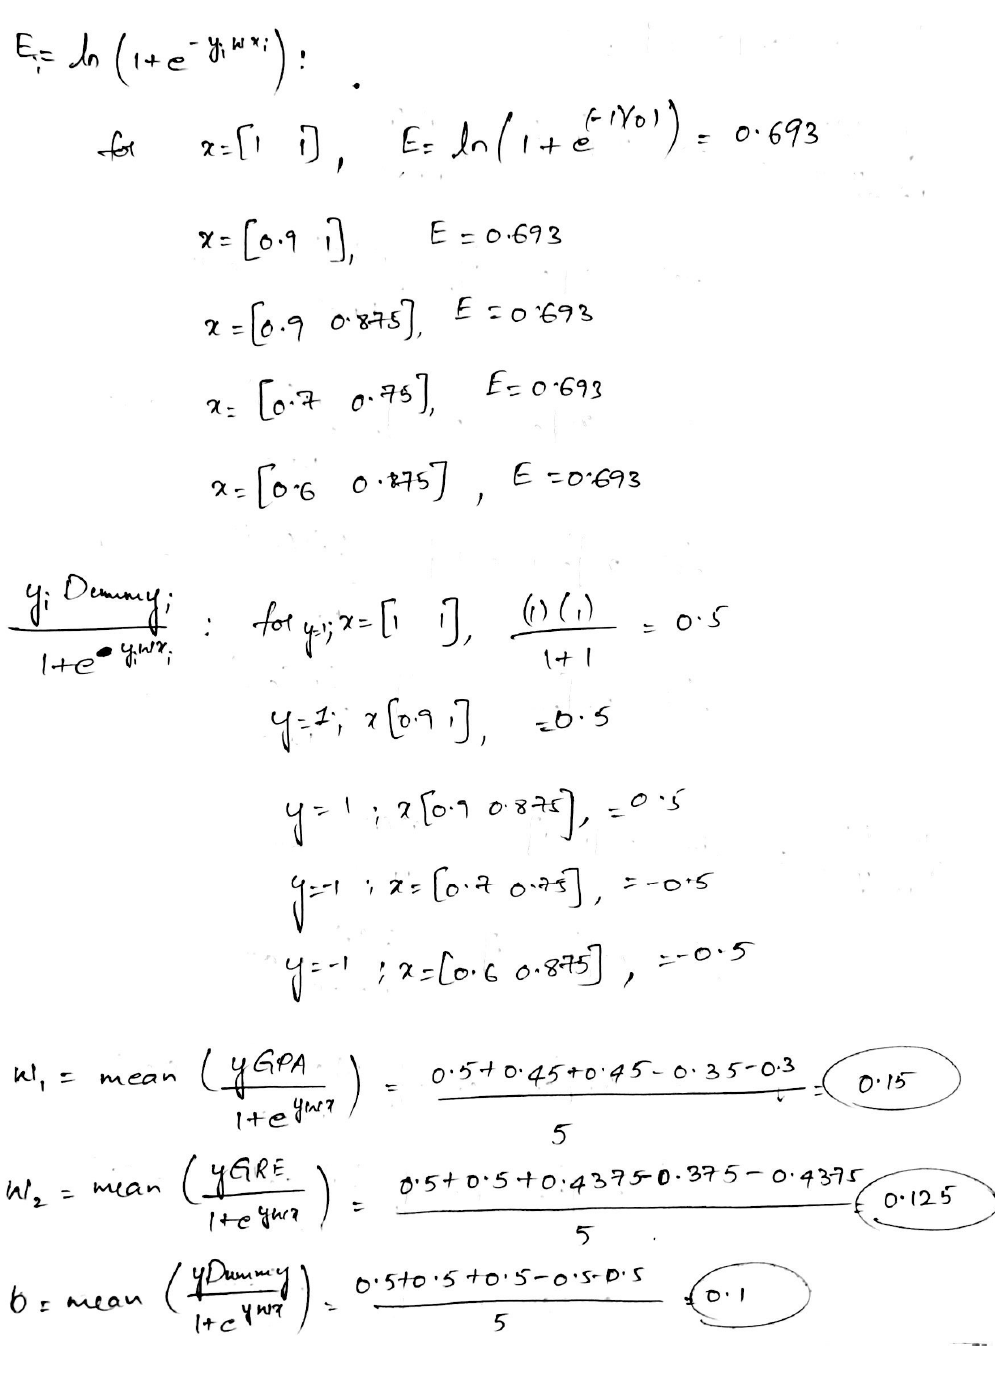 E_i = ln (1+e^{-y_i w x_i}) :
for x=[1 1], E= ln(1+e^{(-1)(0)}) = 0.693
x=[0.9 1], E=0.693
x=[0.9 0.875], E=0.693
x=[0.7 0.75], E=0.693
x=[0.6 0.875], E=0.693
y_i Dummy_i / 1+e^{y_i w x_i} : for y=1; x=[1 1], (1)(1) / 1+1 = 0.5
y=1; x[0.9 1], =0.5
y=1; x[0.9 0.875], =0.5
y=-1; x=[0.7 0.75], =-0.5
y=-1; x=[0.6 0.875], =-0.5
w_1 = mean (yGPA / 1+e^{ywx}) = 0.5+0.45+0.45-0.35-0.3 / 5 = 0.15
w_2 = mean (yGRE / 1+e^{ywx}) = 0.5+0.5+0.4375-0.375-0.4375 / 5 = 0.125
b = mean (yDummy / 1+e^{ywx}) = 0.5+0.5+0.5-0.5-0.5 / 5 = 0.1